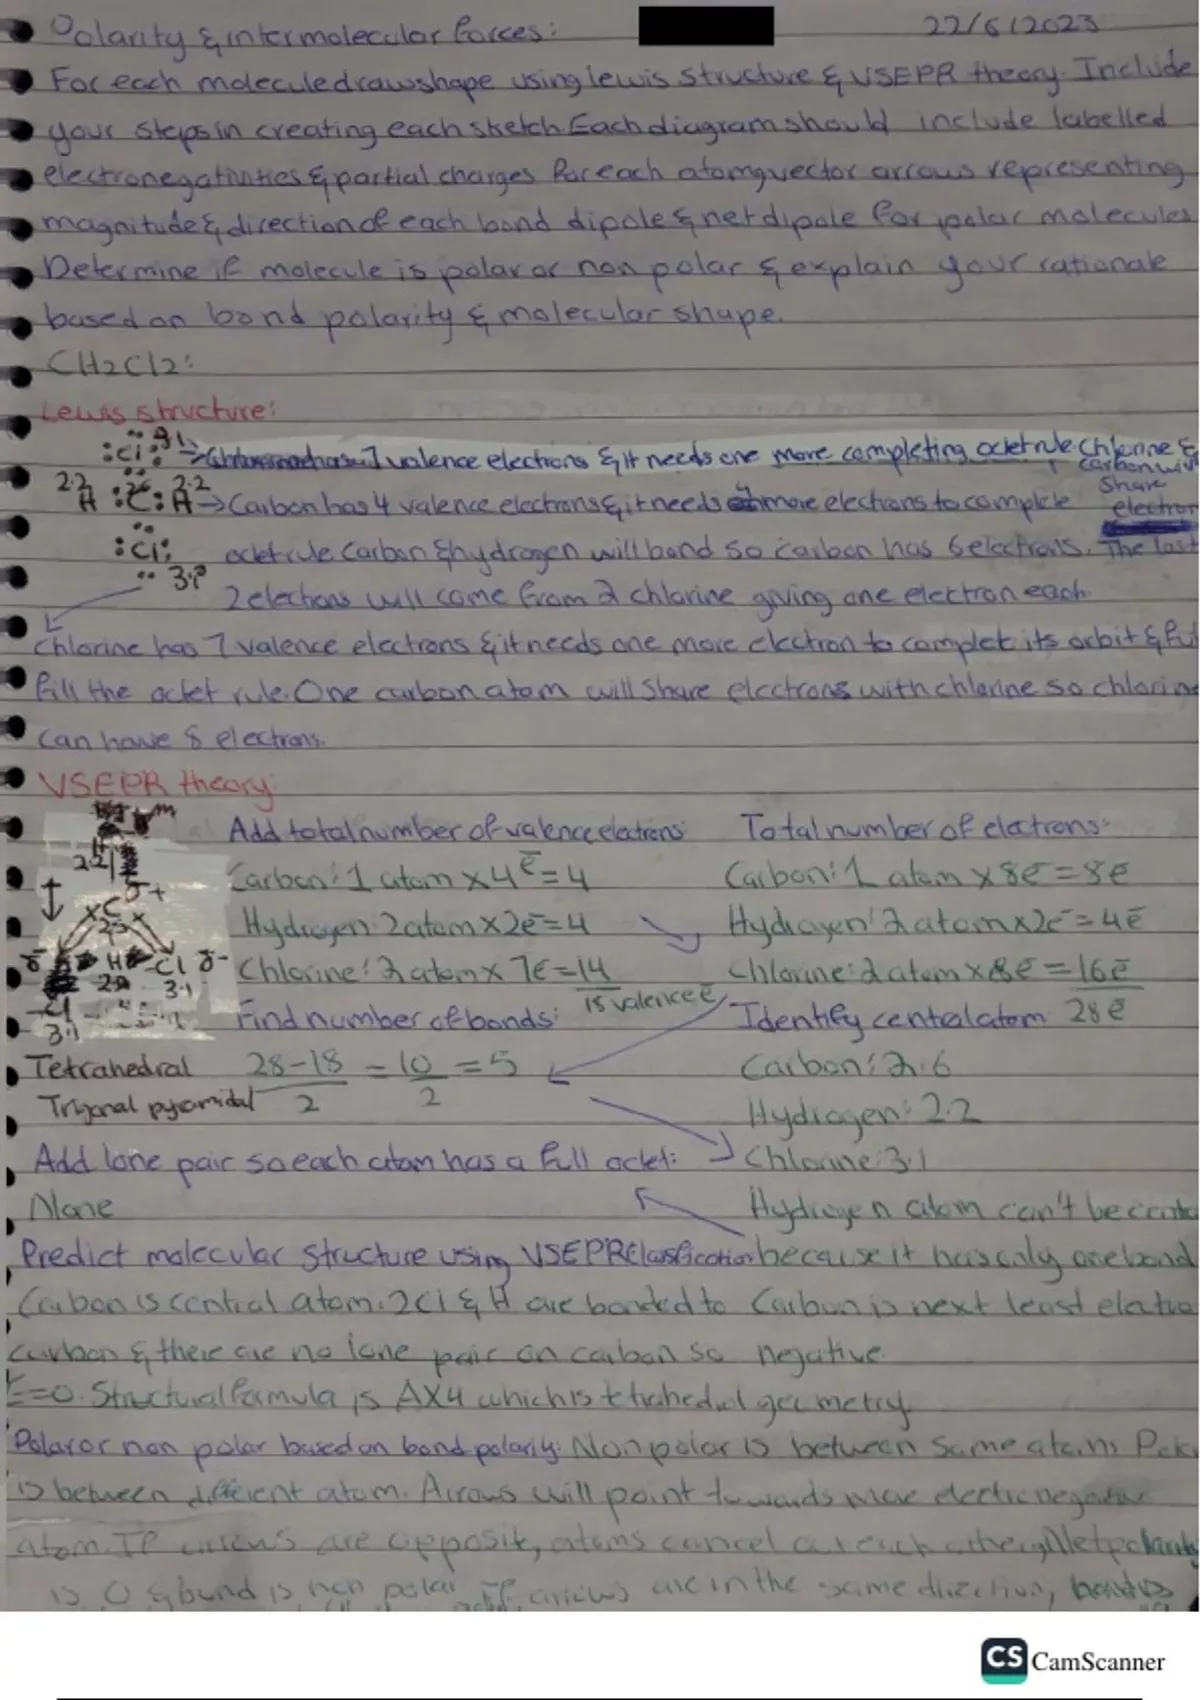 Polarity & intermolecular forces: 22/6/2023
For each molecule draw shape using lewis structure & VSEPR theory. Include
your steps in creating each sketch. Each diagram should include labelled
electronegativities & partial charges for each atom, vector arrows representing
magnitude & direction of each bond dipole & net dipole for polar molecules
Determine if molecule is polar or non polar & explain your rationale
based on bond polarity & molecular shape.
CH2Cl2:
Lewis structure:
:Cl: 3.1 → 7 valence electrons & it needs one more completing octet rule. Chlorine &
carbon will
share
electron
2.2 H :C: H 2.2 → Carbon has 4 valence electrons & it needs 4 more electrons to complete
:Cl: octet rule. Carbon & hydrogen will bond so carbon has 6 electrons. The last
3.1 2 electrons will come from 2 chlorine giving one electron each.
Chlorine has 7 valence electrons & it needs one more electron to complet its orbit & ful
fill the octet rule. One carbon atom will share electrons with chlorine so chlorine
can have 8 electrons.
VSEPR theory
Add total number of valence electrons Total number of electrons:
Carbon: 1 atom x 4e⁻ = 4 Carbon: 1 atom x 8e⁻ = 8e⁻
Hydrogen: 2 atom x 2e⁻ = 4 Hydrogen: 2 atom x 2e⁻ = 4e⁻
Chlorine: 2 atom x 7e⁻ = 14 Chlorine: 2 atom x 8e⁻ = 16e⁻
18 valence e⁻ 28e⁻
H
2.2
C δ+
δ- H Cl δ-
3.1
Cl
3.1
Find number of bonds: Identify central atom
Tetrahedral 28-18/2 = 10/2 = 5 Carbon: 2.6
Trigonal pyramidal Hydrogen: 2.2
Add lone pair so each atom has a full octet: Chlorine: 3.1
None Hydrogen atom can't be
Predict molecular structure using VSEPR Classification because it has only one bond
Carbon is central atom. 2Cl & H are bonded to Carbon is next least
carbon & there are no lone pair on carbon so negative.
E=0. Structural formula is AX4 which is tetrahedral geometry.
Polar or non polar based on bond polarity: Non polar is between same atoms
is between different atom. Arrows will point towards more electronegative
atom. If arrows are opposit, atoms cancel out each other, Net
is 0 & bond is non polar. If arrows are in the same direction, bond is
CS CamScanner